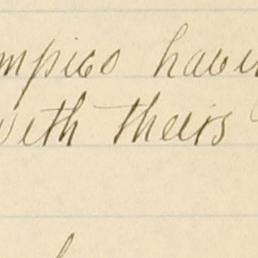 mpico havin
with theirs